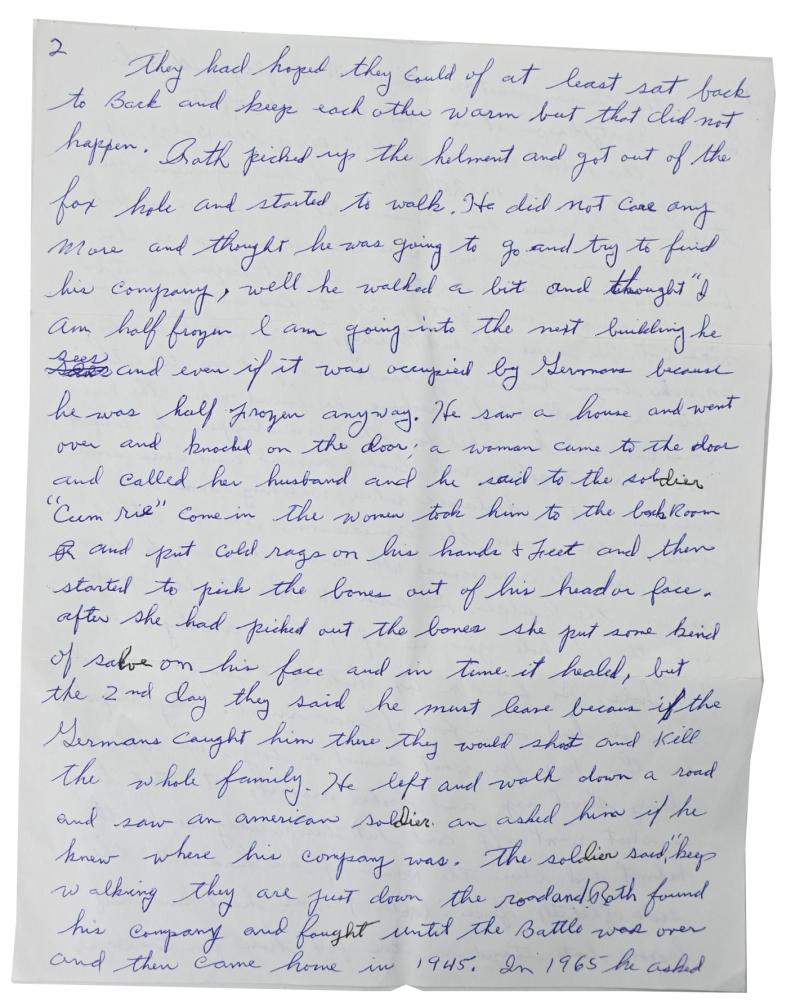 2
They had hoped they could of at least sat back
to Back and keep each other warm but that did not
happen. Roth picked up the helment and got out of the
fox hole and started to walk. He did not care any
more and thought he was going to go and try to find
his company, well he walked a bit and thought "I
am half frozen I am going into the next building he
sees and even if it was occupied by Germans because
he was half frozen anyway. He saw a house and went
over and knocked on the door; a woman came to the door
and called her husband and he said to the soldier
"Cum rie" come in the women took him to the back Room
and put cold rags on his hands & Feet and then
started to pick the bones out of his head or face.
after she had picked out the bones she put some kind
of salve on his face and in time it healed, but
the 2nd day they said he must leave becaus if the
Germans caught him there they would shoot and Kill
the whole family. He left and walk down a road
and saw an american soldier an asked him if he
knew where his company was. The soldier said, "keep
walking they are just down the road and Roth found
his company and fought until the Battle was over
and then came home in 1945. In 1965 he asked